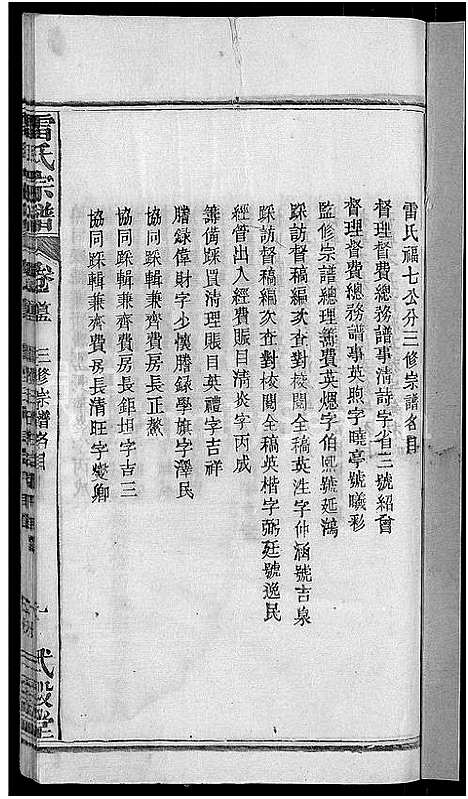 雷氏福七公分三修宗譜名目
督理督費總務譜事清詩字省三號紹會
督理督費總務譜事英煦字曉亭號曦彩
監修宗譜總理籌費英煾字伯熙號延鴻
踩訪督稿編次查對校閱全稿英泩字仲涵號吉泉
踩訪督稿編次查對校閱全稿英楷字弼廷號逸民
經管出入經費賬目清炎字丙成
籌備踩買清理賬目英禮字吉祥
謄録偉財字少懷謄録學旗字澤民
協同踩輯兼齊費房長正熬
協同踩輯兼齊費房長鉅坦字吉三
協同踩輯兼齊費房長清旺字燮卿
雷氏宗譜
卷首
三修宗譜名目
九
式穀堂